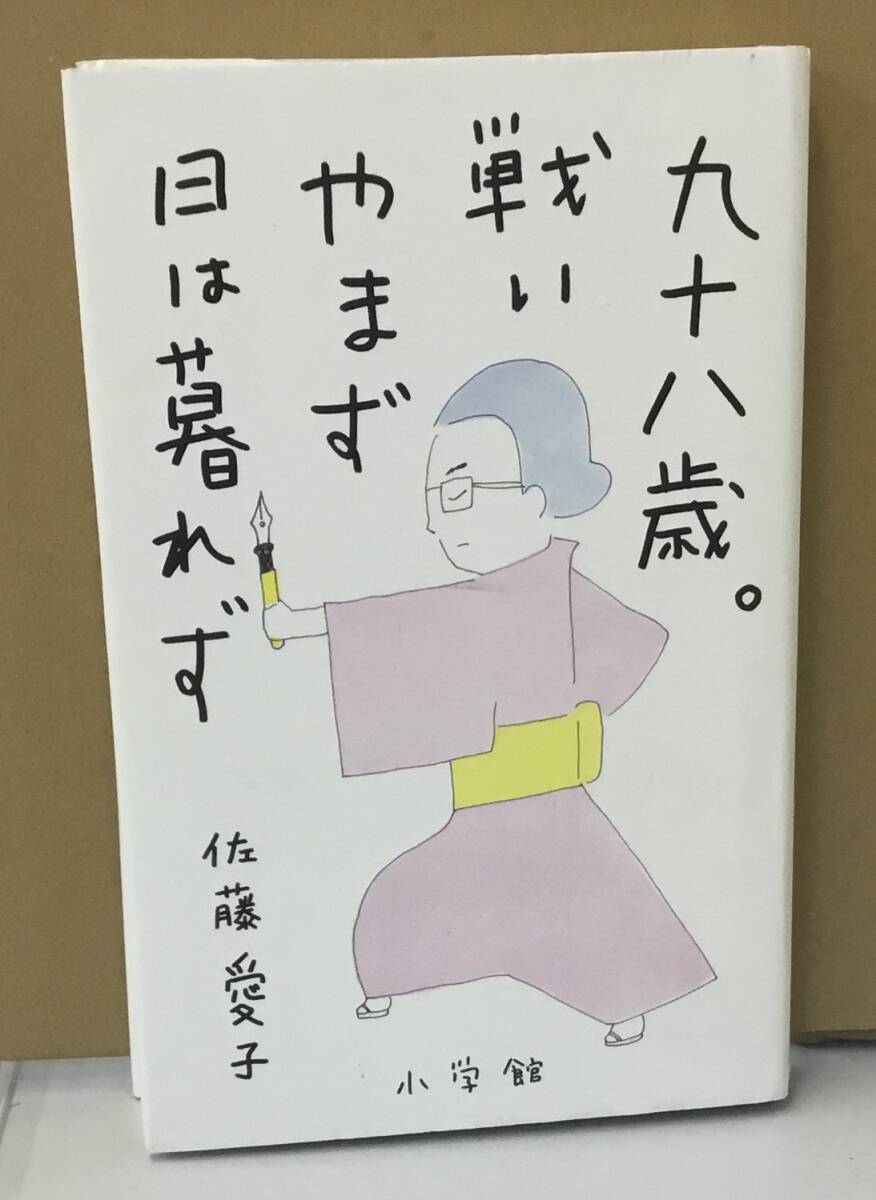 九十八歳。
戦い
やまず
日は暮れず
佐藤愛子
小学館